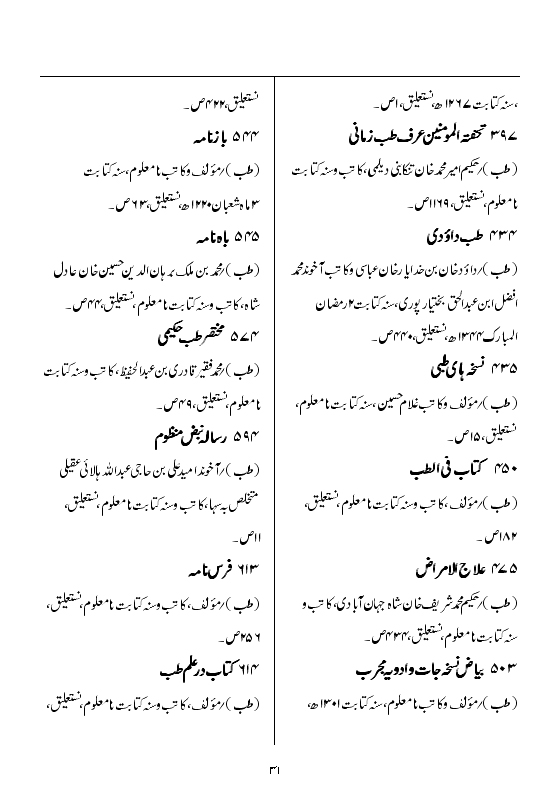 ،سنہ کتابت ۱۲۶۷ھ،نستعلیق،۱ص۔
۳۹۷ تحفۃ المومنین عرف طب زمانی
(طب)؍حکیم امیر محمد خان تنکابنی دیلمی،کاتب وسنہ کتابت
نامعلوم،نستعلیق،۱۱۶۹ص۔
۴۳۴ طب داؤدی
(طب)؍داؤد خان بن خدایار خان عباسی وکاتب آخوند محمد
افضل ابن عبدالحق بختیار پوری،سنہ کتابت ۲رمضان
المبارک ۱۳۴۴ھ،نستعلیق،۴۴۰ص۔
۴۳۵ نسخہ ہای طبی
(طب)؍مؤلف وکاتب غلام حسین،سنہ کتابت نامعلوم،
نستعلیق،۱۵ص۔
۴۵۰ کتاب فی الطب
(طب)؍مؤلف،کاتب وسنہ کتابت نامعلوم،نستعلیق،
۱۸۲ص۔
۴۷۵ علاج الامراض
(طب)؍حکیم محمد شریف خان شاہ جہان آبادی،کاتب و
سنہ کتابت نامعلوم،نستعلیق،۴۳۴ص۔
۵۰۳ بیاض نسخہ جات وادویہ مجرب
(طب)؍مؤلف وکاتب نامعلوم،سنہ کتابت ۱۳۰۱ھ،
نستعلیق،۴۲۲ص۔
۵۴۴ بازنامہ
(طب)؍مؤلف وکاتب نامعلوم،سنہ کتابت
۳ماہ شعبان ۱۲۲۰ھ،نستعلیق،۶۳ص۔
۵۴۵ باہ نامہ
(طب)؍محمد بن ملک برہان الدین حسین خان عادل
شاہ،کاتب وسنہ کتابت نامعلوم،نستعلیق،۴۴ص۔
۵۷۴ مختصر طب حکیمی
(طب)؍محمد فقیر قادری بن عبدالحفیظ،کاتب وسنہ کتابت
نامعلوم،نستعلیق،۴۹ص۔
۵۹۴ رسالہ نبض منظوم
(طب)؍آخوند امید علی بن حاجی عبداللہ ہالائی عقیلی
متخلص بہ سہا،کاتب وسنہ کتابت نامعلوم،نستعلیق،
۱۱ص۔
۶۱۳ فرس نامہ
(طب)؍مؤلف،کاتب وسنہ کتابت نامعلوم،نستعلیق،
۲۵۶ص۔
۶۱۴ کتاب در علم طب
(طب)؍مؤلف،کاتب وسنہ کتابت نامعلوم،نستعلیق،
۳۱